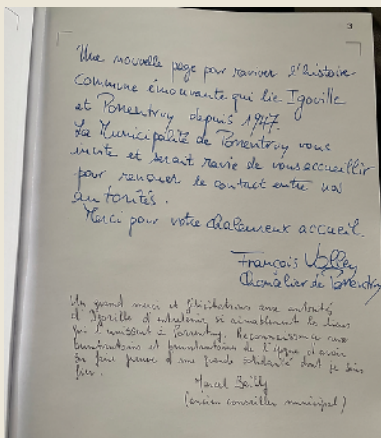 3
Une nouvelle page pour raviver l'histoire
commune émouvante qui lie Igoville
et Porrentruy depuis 1947.
La Municipalité de Porrentruy vous
invite et serait ravie de vous accueillir
pour renouer le contact entre nos
autorités.
Merci pour votre chaleureux accueil.
François Valley
Chancelier de Porrentruy
Un grand merci et félicitations aux autorités
d'Igoville d'entretenir si aimablement les liens
qui l'unissent à Porrentruy. Reconnaissance aux
de l'époque d'avoir
su faire preuve d'une grande solidarité dont je suis
fier.
Marcel
(ancien conseiller municipal)